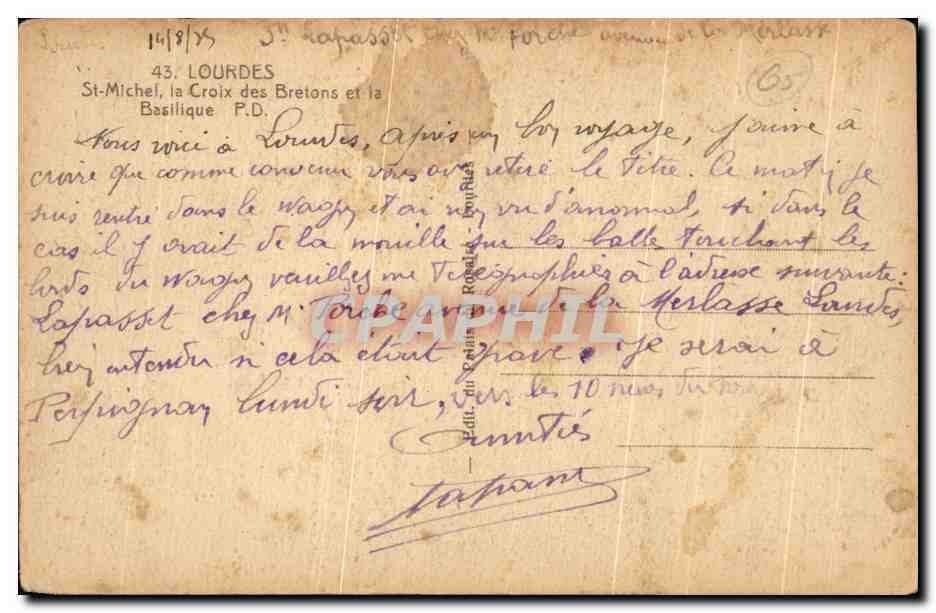 14/8/35 Lapasset chez Mr Porche avenue de la Merlasse
65
43. LOURDES
St-Michel, la Croix des Bretons et la
Basilique P.D.
Nous voici à Lourdes, après un bon voyage, j'aime à
croire que comme convenu vous avez retiré le titre. Ce matin je
suis rentré dans le wagon et ai rien vu d'anormal, si dans le
cas il y avait de la mouille sur les balle touchant les
bords du wagon veuillez me télégraphier à l'adresse suivante:
Lapasset chez Mr Porche avenue de la Merlasse Lourdes,
bien entendu si cela était grave. je serai à
Perpignan lundi soir, vers les 10 heures du soir
Amitiés
Lapasset
Edit. du Palais du Rosaire - Lourdes
CPAPHIL